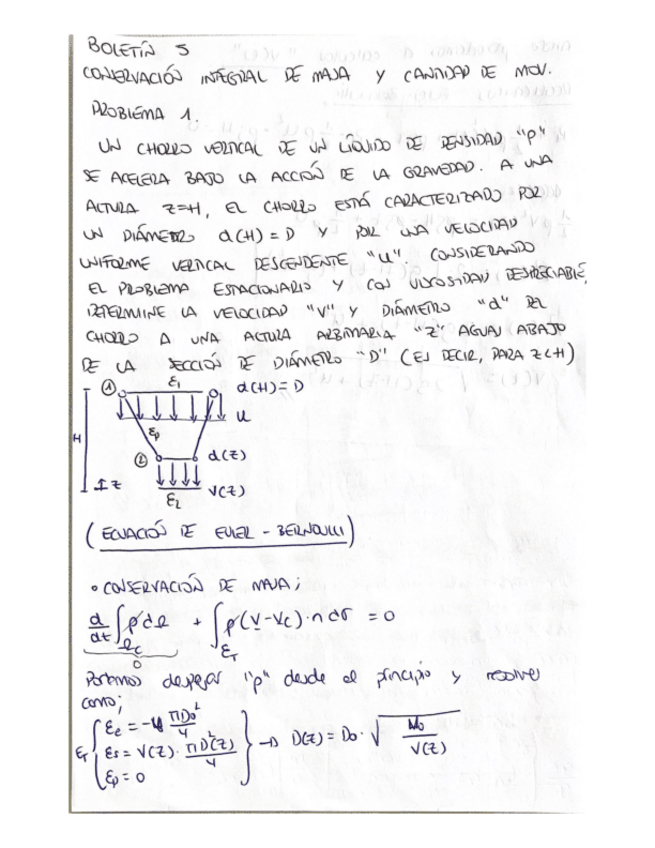 BOLETÍN 5
CONSERVACIÓN INTEGRAL DE MASA Y CANTIDAD DE MOV.
PROBLEMA 1.
UN CHORRO VERTICAL DE UN LÍQUIDO DE DENSIDAD "ρ"
SE ACELERA BAJO LA ACCIÓN DE LA GRAVEDAD. A UNA
ALTURA Z=H, EL CHORRO ESTÁ CARACTERIZADO POR
UN DIÁMETRO d(H)=D Y POR UNA VELOCIDAD
UNIFORME VERTICAL DESCENDENTE "U". CONSIDERANDO
EL PROBLEMA ESTACIONARIO Y CON VISCOSIDAD DESPRECIABLE,
DETERMINE LA VELOCIDAD "V" Y DIÁMETRO "d" DEL
CHORRO A UNA ALTURA ARBITRARIA "Z" AGUAS ABAJO
DE LA SECCIÓN DE DIÁMETRO "D" (ES DECIR, PARA Z<H)
① Σ1 d(H)=D
U
Σp
H ② d(Z)
Z V(Z)
Σ2
(ECUACIÓN DE EULER - BERNOULLI)
• CONSERVACIÓN DE MASA;
d/dt ∫Ωc ρ dΩ + ∫ΣT ρ(V-Vc)·n dσ = 0
0
Podemos despejar "ρ" desde el principio y resolver
como;
ΣT { Σe = -U ΠD₀²/4
Σs = V(Z)· ΠD²(Z)/4 → D(Z) = D₀· √(U₀/V(Z))
Σp = 0 }